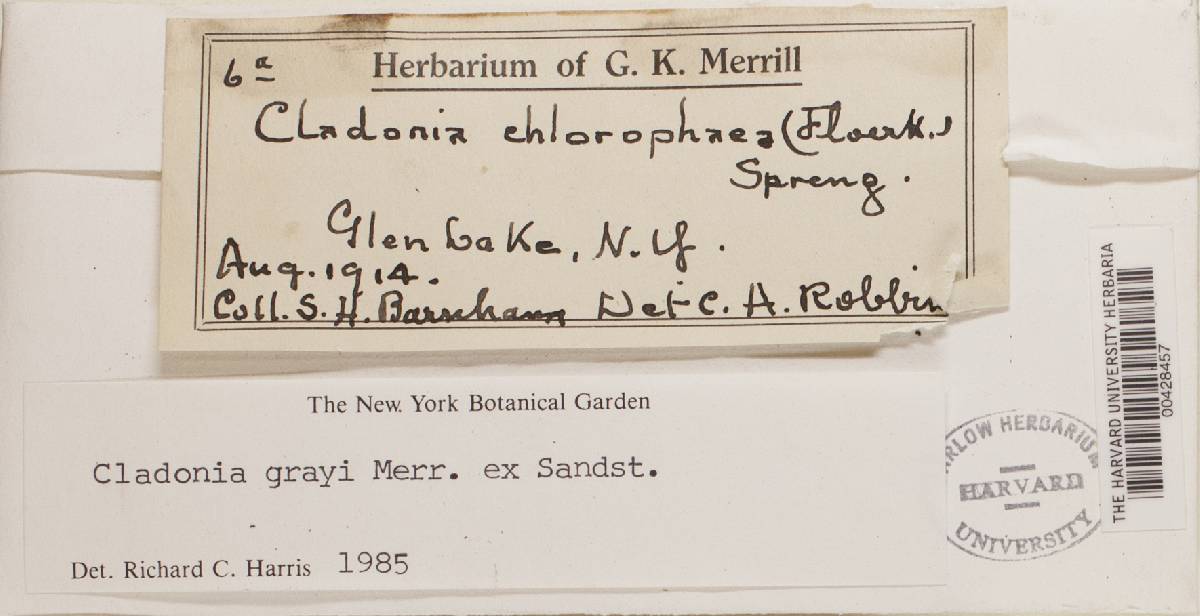 6a
Herbarium of G. K. Merrill
Cladonia chlorophaea (Floerk.)
Spreng.
Glen Lake, N.Y.
Aug. 1914.
Coll. S. H. Det. C. A. Robbin
The New York Botanical Garden
Cladonia grayi Merr. ex Sandst.
Det. Richard C. Harris 1985
RLOW HERBARIUM
HARVARD
UNIVERSITY
THE HARVARD UNIVERSITY HERBARIA
00428457